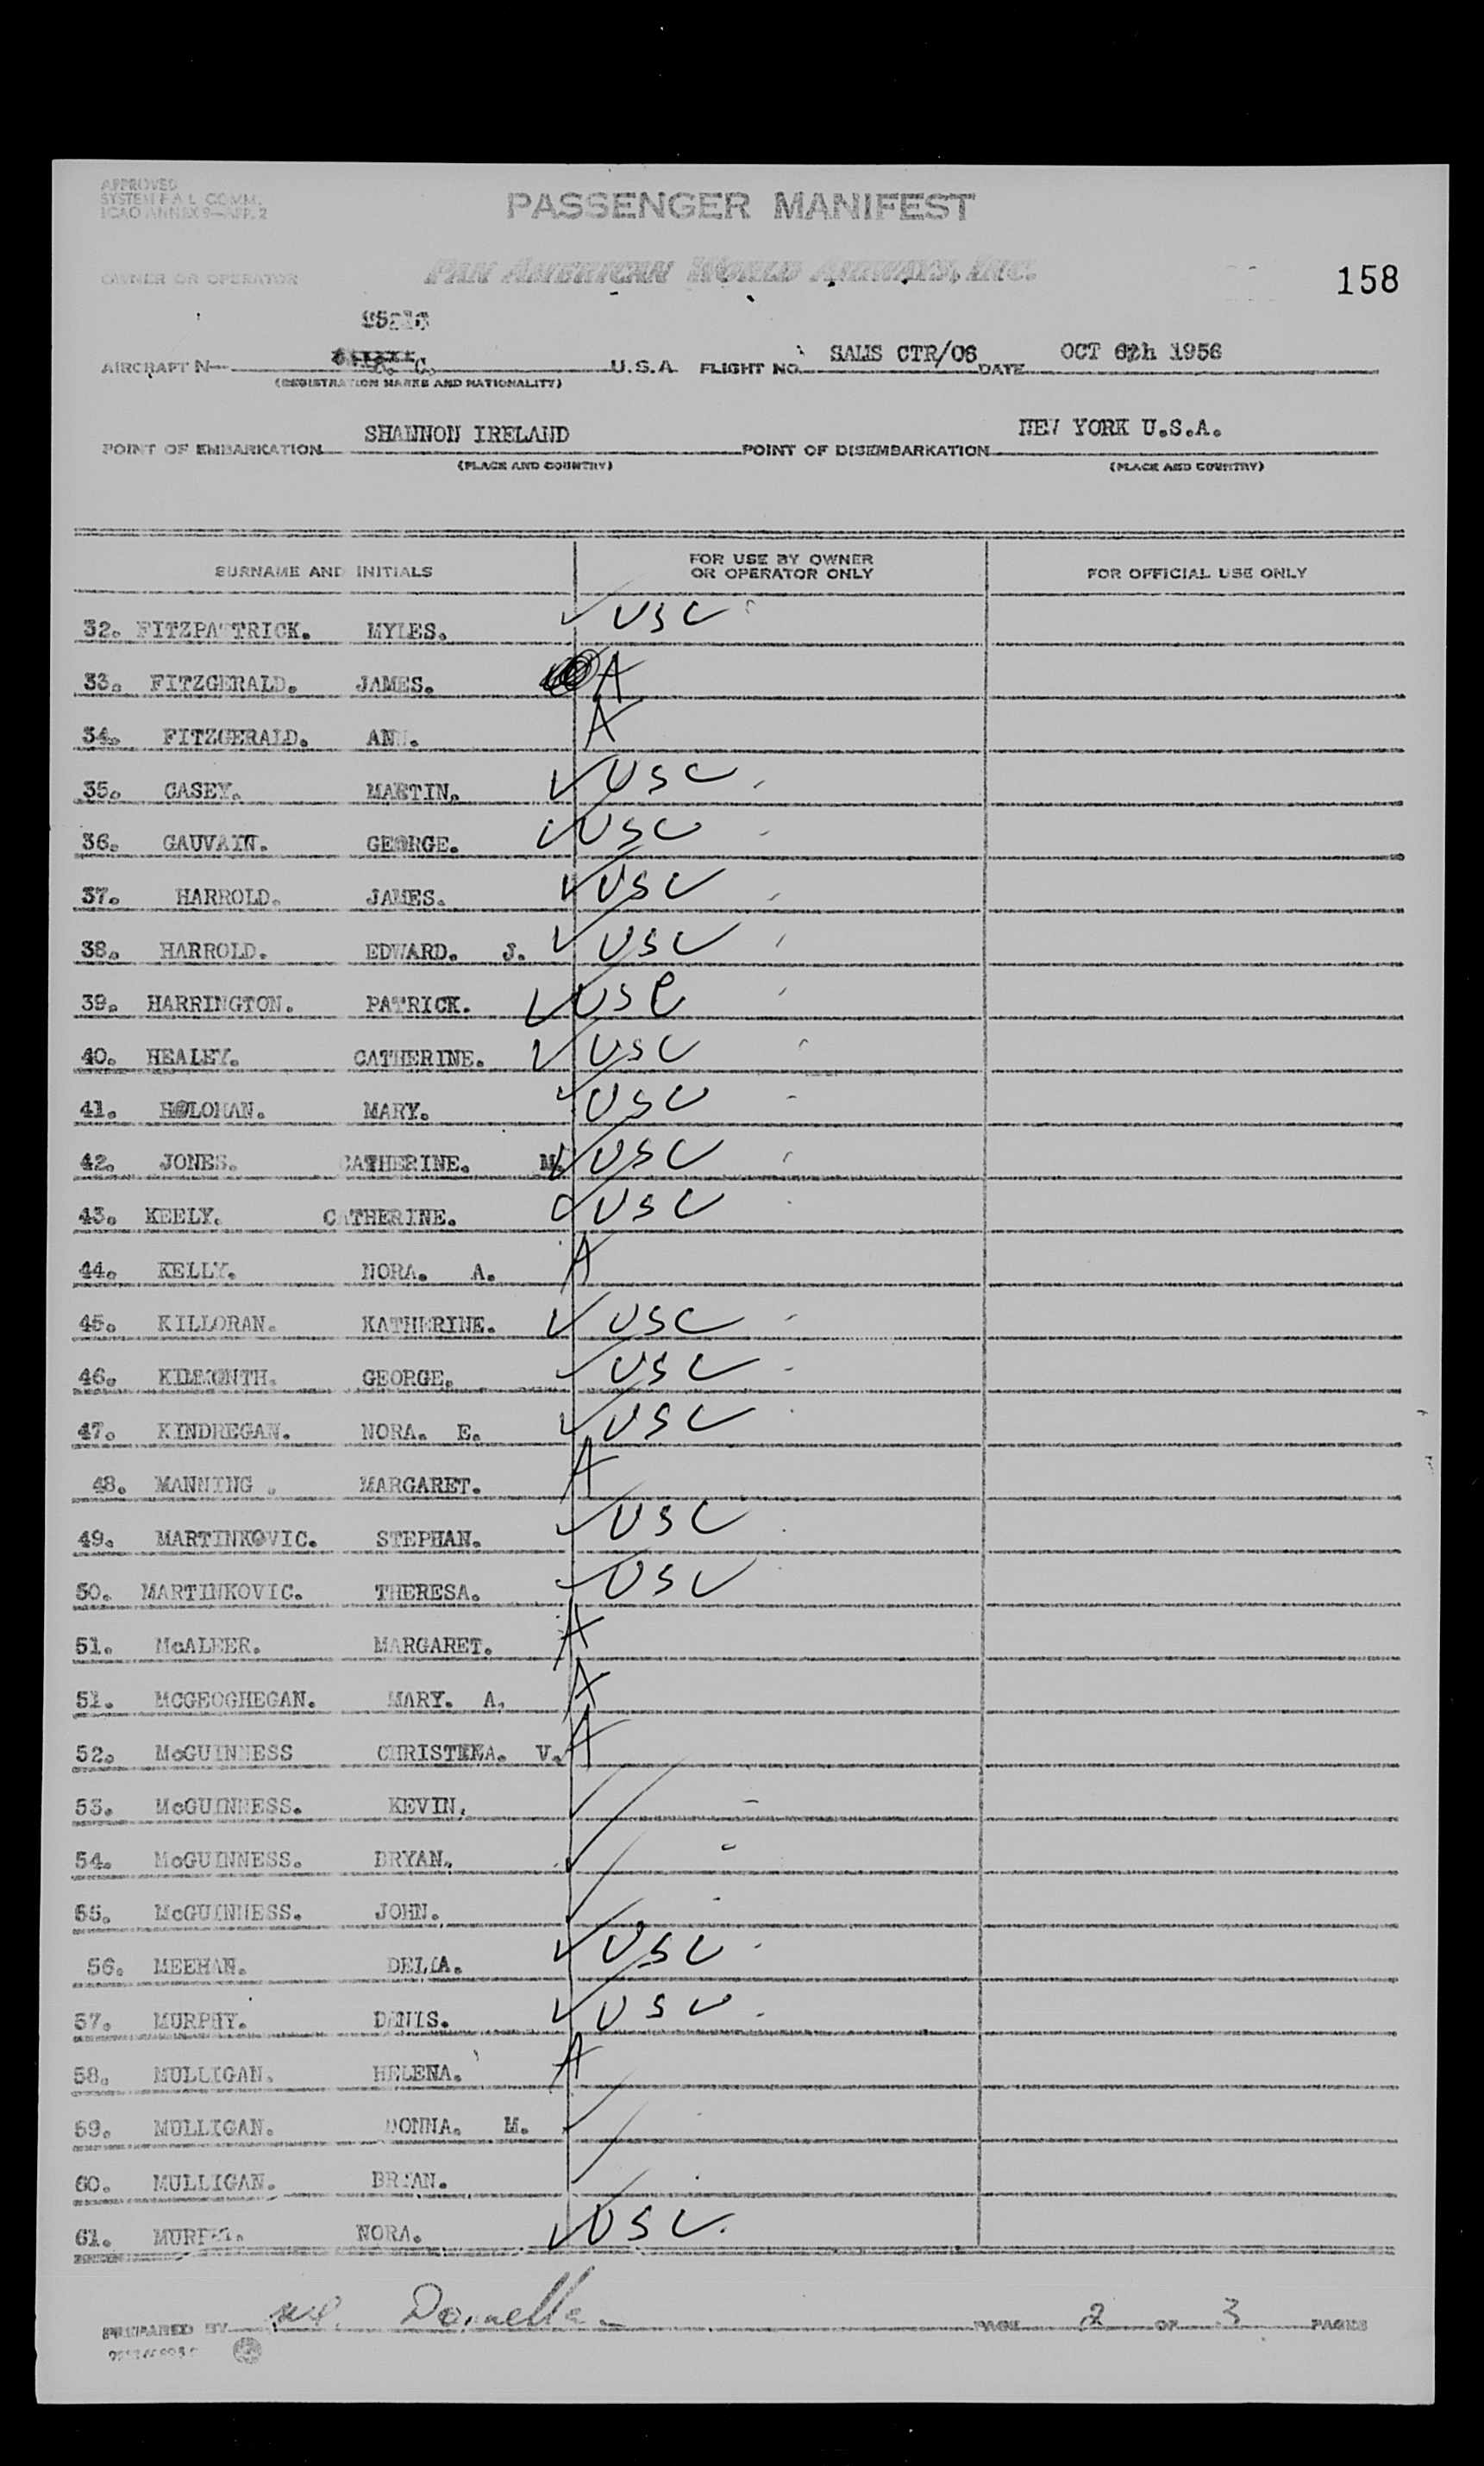 APPROVED
SYSTEM F.A.L. COMM.
ICAO ANNEX 9—APP. 2
PASSENGER MANIFEST
OWNER OR OPERATOR
PAN AMERICAN WORLD AIRWAYS, INC.
158
AIRCRAFT N U.S.A. FLIGHT NO. SALMS CTR/06 DATE OCT 6th 1956
(REGISTRATION MARKS AND NATIONALITY)
POINT OF EMBARKATION SHANNON IRELAND POINT OF DISEMBARKATION NEW YORK U.S.A.
(PLACE AND COUNTRY) (PLACE AND COUNTRY)
SURNAME AND INITIALS FOR USE BY OWNER OR OPERATOR ONLY FOR OFFICIAL USE ONLY
32. FITZPATTRICK. MYLES. ✓ USC
33. FITZGERALD. JAMES. A
34. FITZGERALD. ANN. A
35. CASEY. MARTIN. ✓ USC
36. GAUVAIN. GEORGE. ✓ USC
37. HARROLD. JAMES. ✓ USC
38. HARROLD. EDWARD. J. ✓ USC
39. HARRINGTON. PATRICK. ✓ USC
40. HEALEY. CATHERINE. ✓ USC
41. HOLOHAN. MARY. ✓ USC
42. JONES. CATHERINE. M. ✓ USC
43. KEELY. CATHERINE. ✓ USC
44. KELLY. NORA. A. A
45. KILLORAN. KATHERINE. ✓ USC
46. GEORGE. ✓ USC
47. KINDREGAN. NORA. E. ✓ USC
48. MANNING . MARGARET. A
49. MARTINKOVIC. STEPHAN. ✓ USC
50. MARTINKOVIC. THERESA. ✓ USC
51. McALEER. MARGARET. A
51. MCGEOGHEGAN. MARY. A. A
52. McGUINNESS CHRISTINA. V. A
53. McGUINNESS. KEVIN. ✓
54. McGUINNESS. BRYAN. ✓
55. McGUINNESS. JOHN. ✓
56. MEEHAN. DELIA. ✓ USC
57. MURPHY. DENIS. ✓ USC
58. MULLIGAN. HELENA. A
59. MULLIGAN. DONNA. M. ✓
60. MULLIGAN. BRIAN. ✓
61. MURPHY. NORA. ✓ USC
PREPARED BY PAGE 2 OF 3 PAGES